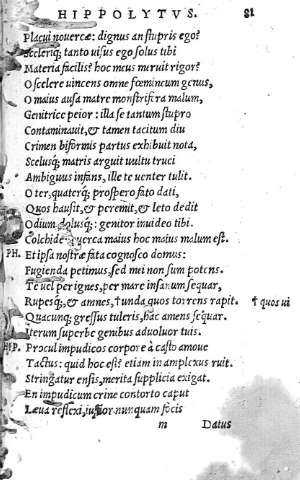 HIPPOLYTVS. 81
Placui nouercæ: dignus an stupris ego?
Sceleriq; tanto uisus ego solus tibi
Materia facilis? hoc meus meruit rigor?
O scelere uincens omne fœmineum genus,
O maius ausa matre monstrifera malum,
Genitrice peior: illa se tantum stupro
Contaminauit, & tamen tacitum diu
Crimen biformis partus exhibuit nota,
Scelusq; matris arguit uultu truci
Ambiguus infans, ille te uenter tulit.
O ter, quaterq; prospero fato dati,
Quos hausit, & peremit, & leto dedit
Odium, dolusq;: genitor inuideo tibi.
Colchide nouerca maius hoc maius malum est.
PH. Et ipsa nostræ fata cognosco domus:
Fugienda petimus, sed mei non sum potens.
Te uel per ignes, per mare insanum sequar,
Rupesq;, & amnes, † unda quos torrens rapit. † quos ui
Quacunq; gressus tuleris, hac amens sequar.
Iterum superbe genibus aduoluor tuis.
HIP. Procul impudicos corpore à casto amoue
Tactus: quid hoc est? etiam in amplexus ruit.
Stringatur ensis, merita supplicia exigat.
En impudicum crine contorto caput
Læua reflexi, iustior nunquam focis
m Datus